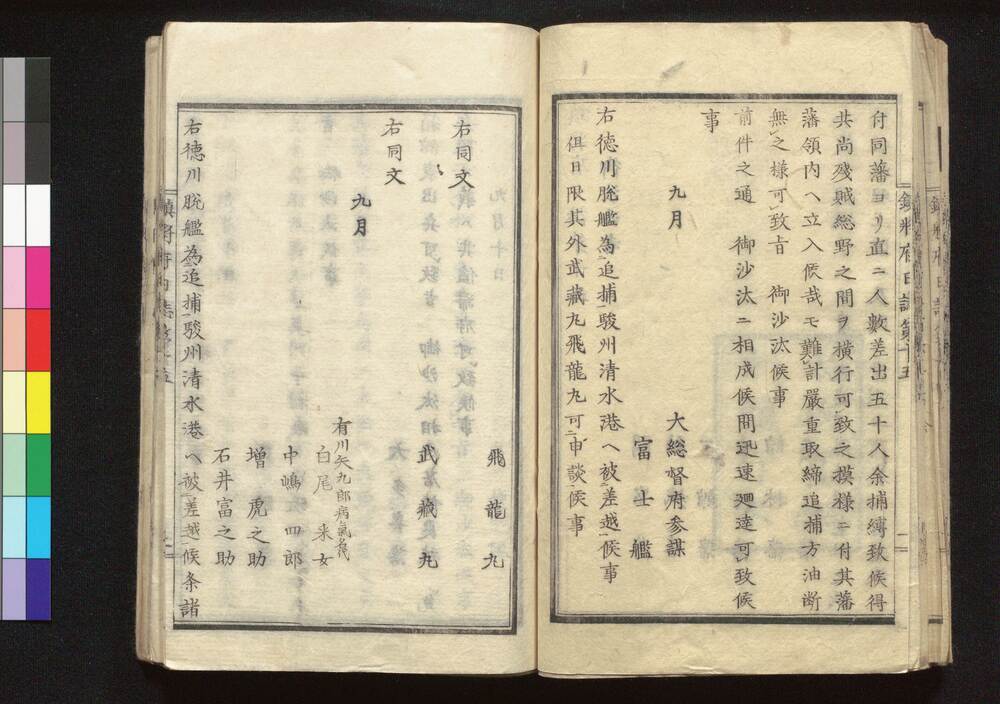 付同藩ヨリ直ニ人数差出五十人余捕縛致候得
共尚残賊総野之間ヲ横行可致之摸様ニ付其藩
藩領内ヘ立入候哉モ難計厳重取締追捕方油断
無之様可致旨　御沙汰候事
前件之通　御沙汰ニ相成候間迅速廻達可致候
事
九月
大総督府参謀
富士艦
右徳川脱艦為追捕駿州清水港ヘ被差越候事
但日限其外武蔵丸飛龍丸可申談候事
鎮将府日誌第十五
飛龍丸
右同文
武蔵丸
右同文
九月
有川矢九郎病気名代
白尾采女
中嶋四郎
増虎之助
石井富之助
右徳川脱艦為追捕駿州清水港ヘ被差越候条諸